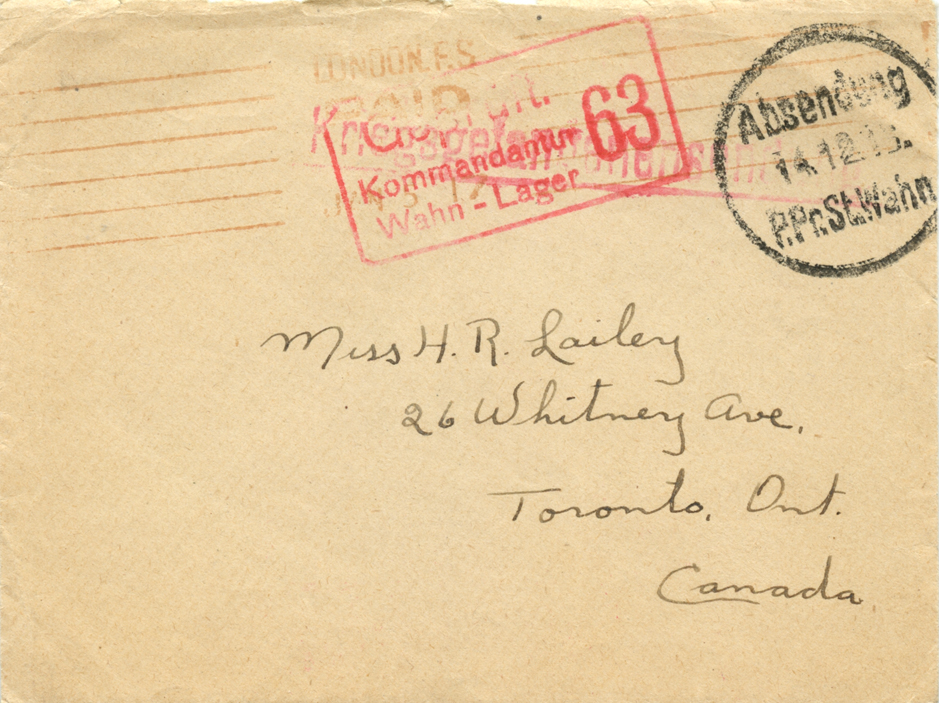 LONDON. F.S
PAID
Geprüft.
Kommandantur
Wahn - Lager
63
Absendung
14.12.18.
P.Pr.St.Wahn
Miss H. R. Lailey
26 Whitney Ave.
Toronto, Ont.
Canada